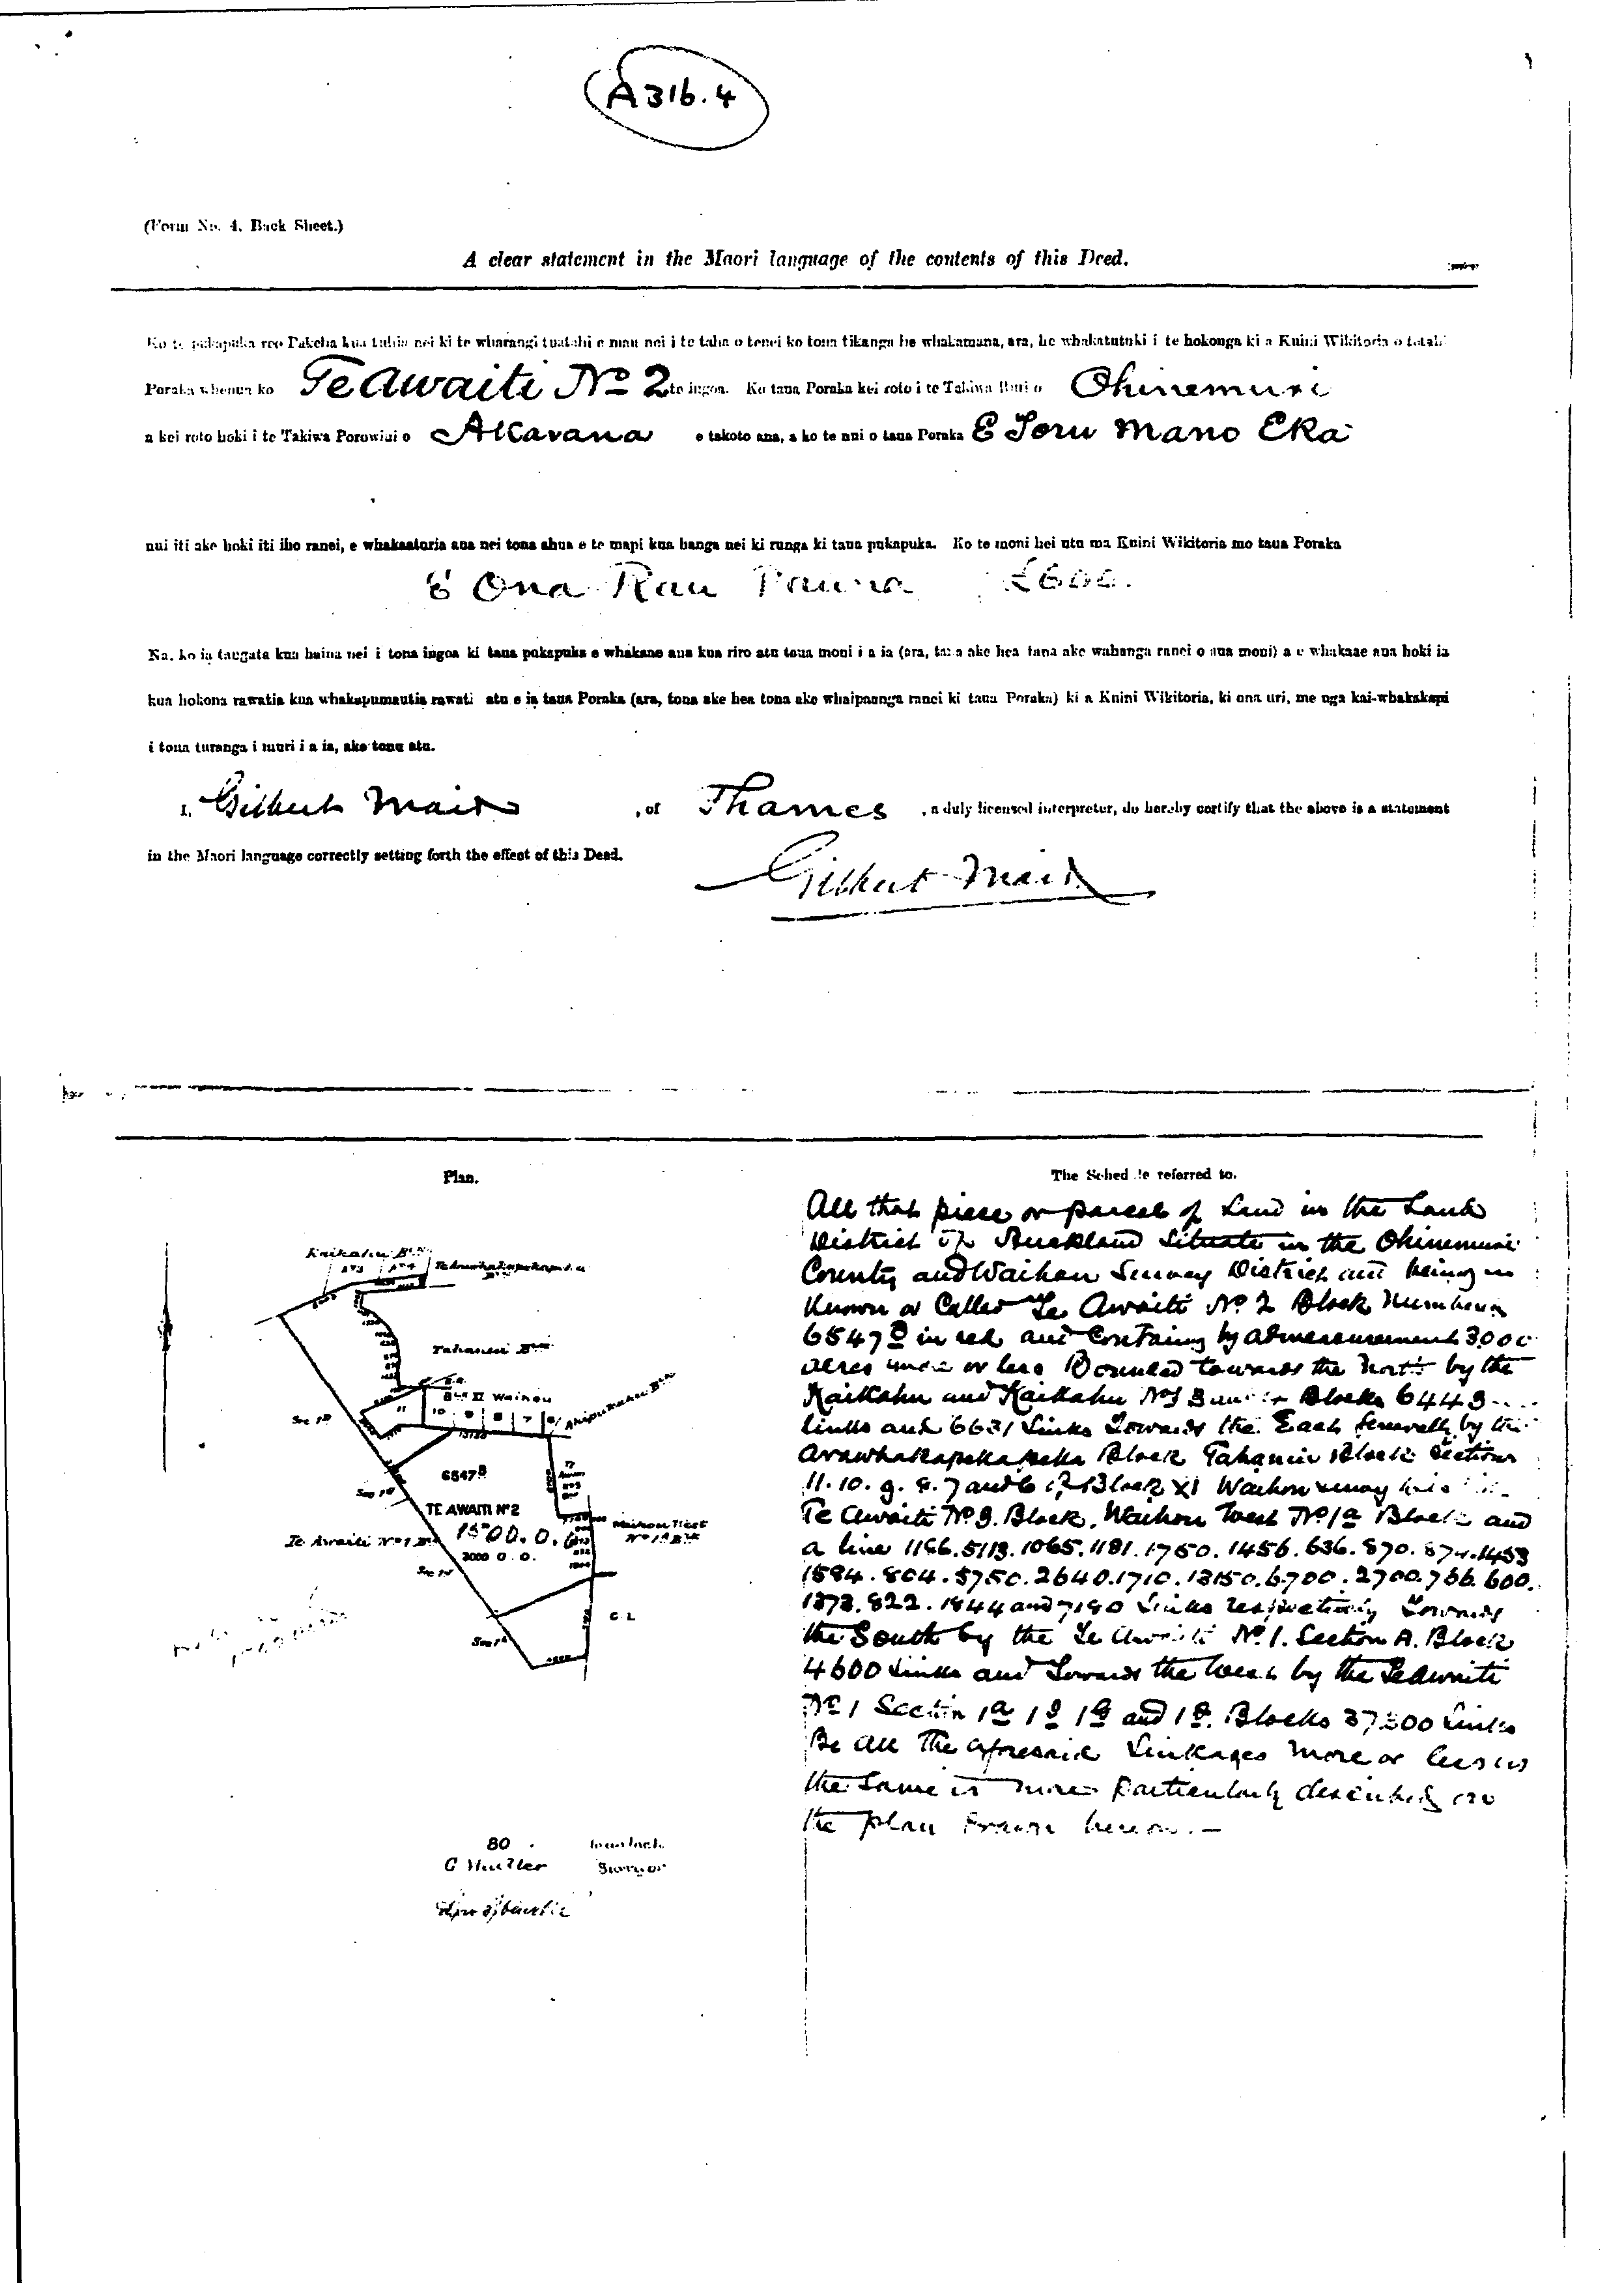 A316.4
(Form No. 4. Back Sheet.)
A clear statement in the Maori language of the contents of this Deed.
Ko te pukapuka reo Pakeha kua tuhia nei ki te wharangi tuatahi e mau nei i te taha o tenei ko tona tikanga he whakamana, ara, he whakatutuki i te hokonga ki a Kuini Wikitoria o tetahi
Poraka whenua ko Te Awaiti No 2 te ingoa. Ko taua Poraka kei roto i te Takiwa Ruri o Ohinemuri
a kei roto hoki i te Takiwa Porowini o Akarana e takoto ana, a ko te nui o taua Poraka E Toru Mano Eka
nui iti ake hoki iti iho ranei, e whakaaturia ana nei tona ahua e te mapi kua hanga nei ki runga ki taua pukapuka. Ko te moni hei utu ma Kuini Wikitoria mo taua Poraka
E Ono Rau Pauna £600.
Na, ko ia tangata kua haina nei i tona ingoa ki taua pukapuka e whakaae ana kua riro atu taua moni i a ia (ara, tana ake hea tana ake wahanga ranei o aua moni) a e whakaae ana hoki ia
kua hokona rawatia kua whakapumautia rawatia atu e ia taua Poraka (ara, tona ake hea tona ake whaipaanga ranei ki taua Poraka) ki a Kuini Wikitoria, ki ona uri, me nga kai-whakakapi
i tona turanga i muri i a ia, ake tonu atu.
I, Gilbert Mair, of Thames, a duly licensed interpreter, do hereby certify that the above is a statement
in the Maori language correctly setting forth the effect of this Deed.
Gilbert Mair
Plan.
Kaikahu Bk
Tahanui Bk
Bk XI Waihou
11 10 9 8 7 6
6547B
TE AWAITI No 2
1500.0.0
3000.0.0.
Te Awaiti No 1 Bk
Waihou West
No 1A Bk
C L
80
Surveyor
The Schedule referred to.
All that piece or parcel of Land in the Land
District of Auckland Situate in the Ohinemuri
County and Waihou Survey District and being
Known or Called Te Awaiti No 2 Block Numbered
6547B in red and Containing by admeasurement 3000
acres more or less Bounded towards the North by the
Kaikahu and Kaikahu Blocks 6443
links and 6631 Links Towards the East generally by the
Arawhakapekapeka Block Tahanui Block Sections
11. 10. 9. 8. 7 and 6 of Block XI Waihou
Te Awaiti No 3. Block, Waihou West No 1A Block and
a line 1166. 5113. 1065. 1181. 1750. 1456. 636. 870. 874. 1453
1594. 804. 5750. 2640. 1710. 13150. 6700. 2700. 766. 600.
1373. 822. 1844 and 7190 Links respectively Towards
the South by the Te Awaiti No 1. Section A. Block
4600 Links and Towards the West by the Te Awaiti
No 1 Section Blocks Links
Be all the aforesaid Linkages more or less as
the Same is more particularly described on
the plan drawn hereon.—